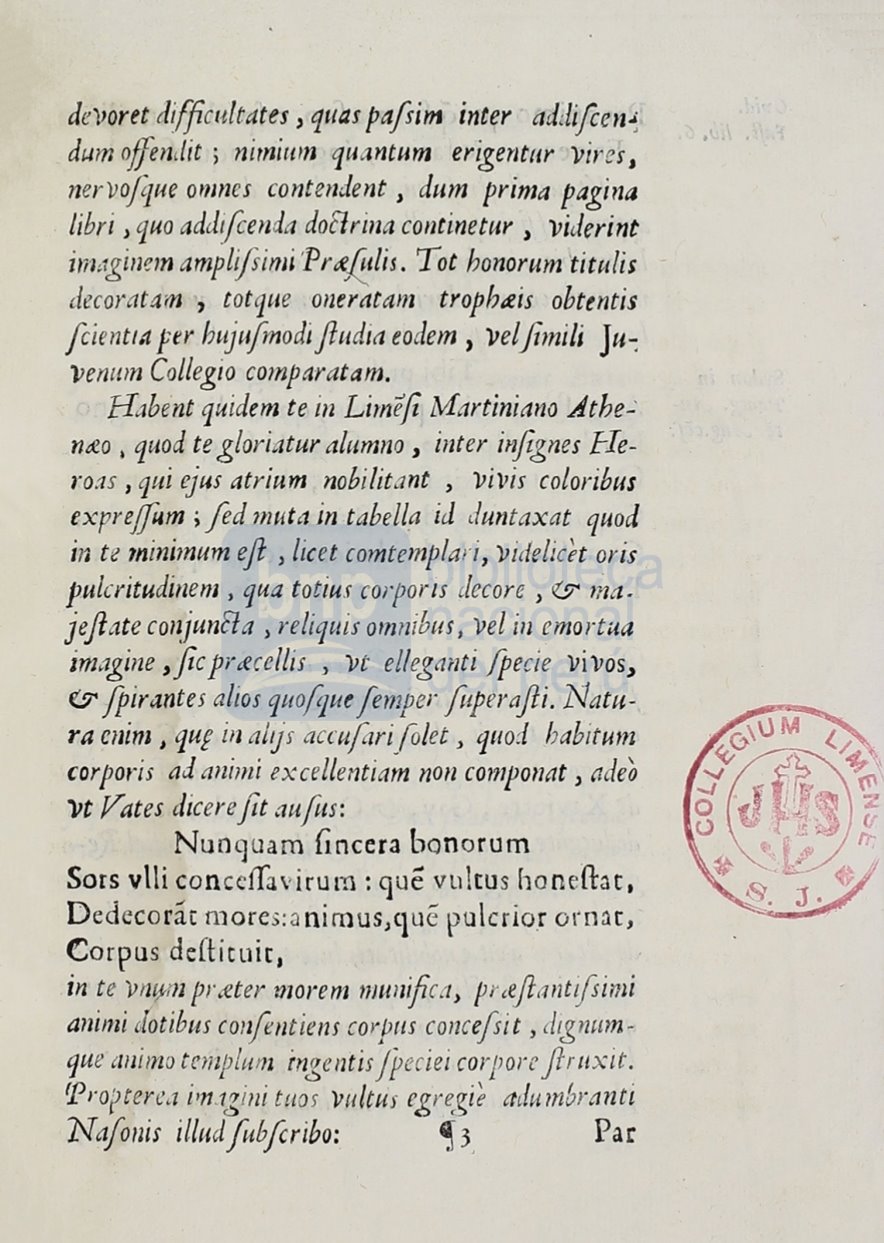 devoret difficultates, quas paſsim inter addiſcen-
dum offendit ; nimium quantum erigentur vires,
nervoſque omnes contendent, dum prima pagina
libri, quo addiſcenda doctrina continetur, viderint
imaginem ampliſsimi Præſulis. Tot honorum titulis
decoratam, totque oneratam trophæis obtentis
ſcientia per hujuſmodi ſtudia eodem, vel ſimili Ju-
venum Collegio comparatam.
Habent quidem te in Limẽſi Martiniano Athe-
næo, quod te gloriatur alumno, inter inſignes He-
roas, qui ejus atrium nobilitant, vivis coloribus
expreſſum ; ſed muta in tabella id duntaxat quod
in te minimum eſt, licet comtemplari, videlicèt oris
pulcritudinem, qua totius corporis decore, & ma-
jeſtate conjuncta, reliquis omnibus, vel in emortua
imagine, ſic præcellis, vt elleganti ſpecie vivos,
& ſpirantes alios quoſque ſemper ſuperaſti. Natu-
ra enim, quę in alijs accuſari ſolet, quod habitum
corporis ad animi excellentiam non componat, adeò
vt Vates dicere ſit auſus:
Nunquam ſincera bonorum
Sors vlli conceſſa virum : quẽ vultus honeſtat,
Dedecorãt mores: animus, quẽ pulcrior ornat,
Corpus deſtituit,
in te vnum præter morem munifica, præſtantiſsimi
animi dotibus conſentiens corpus conceſsit, dignum-
que animo templum ingentis ſpeciei corpore ſtruxit.
Propterea imagini tuos vultus egregiè adumbranti
Naſonis illud ſubſcribo: ¶3 Par
COLLEGIUM LIMENSE
JHS
S. J.
biblioteca
nacional